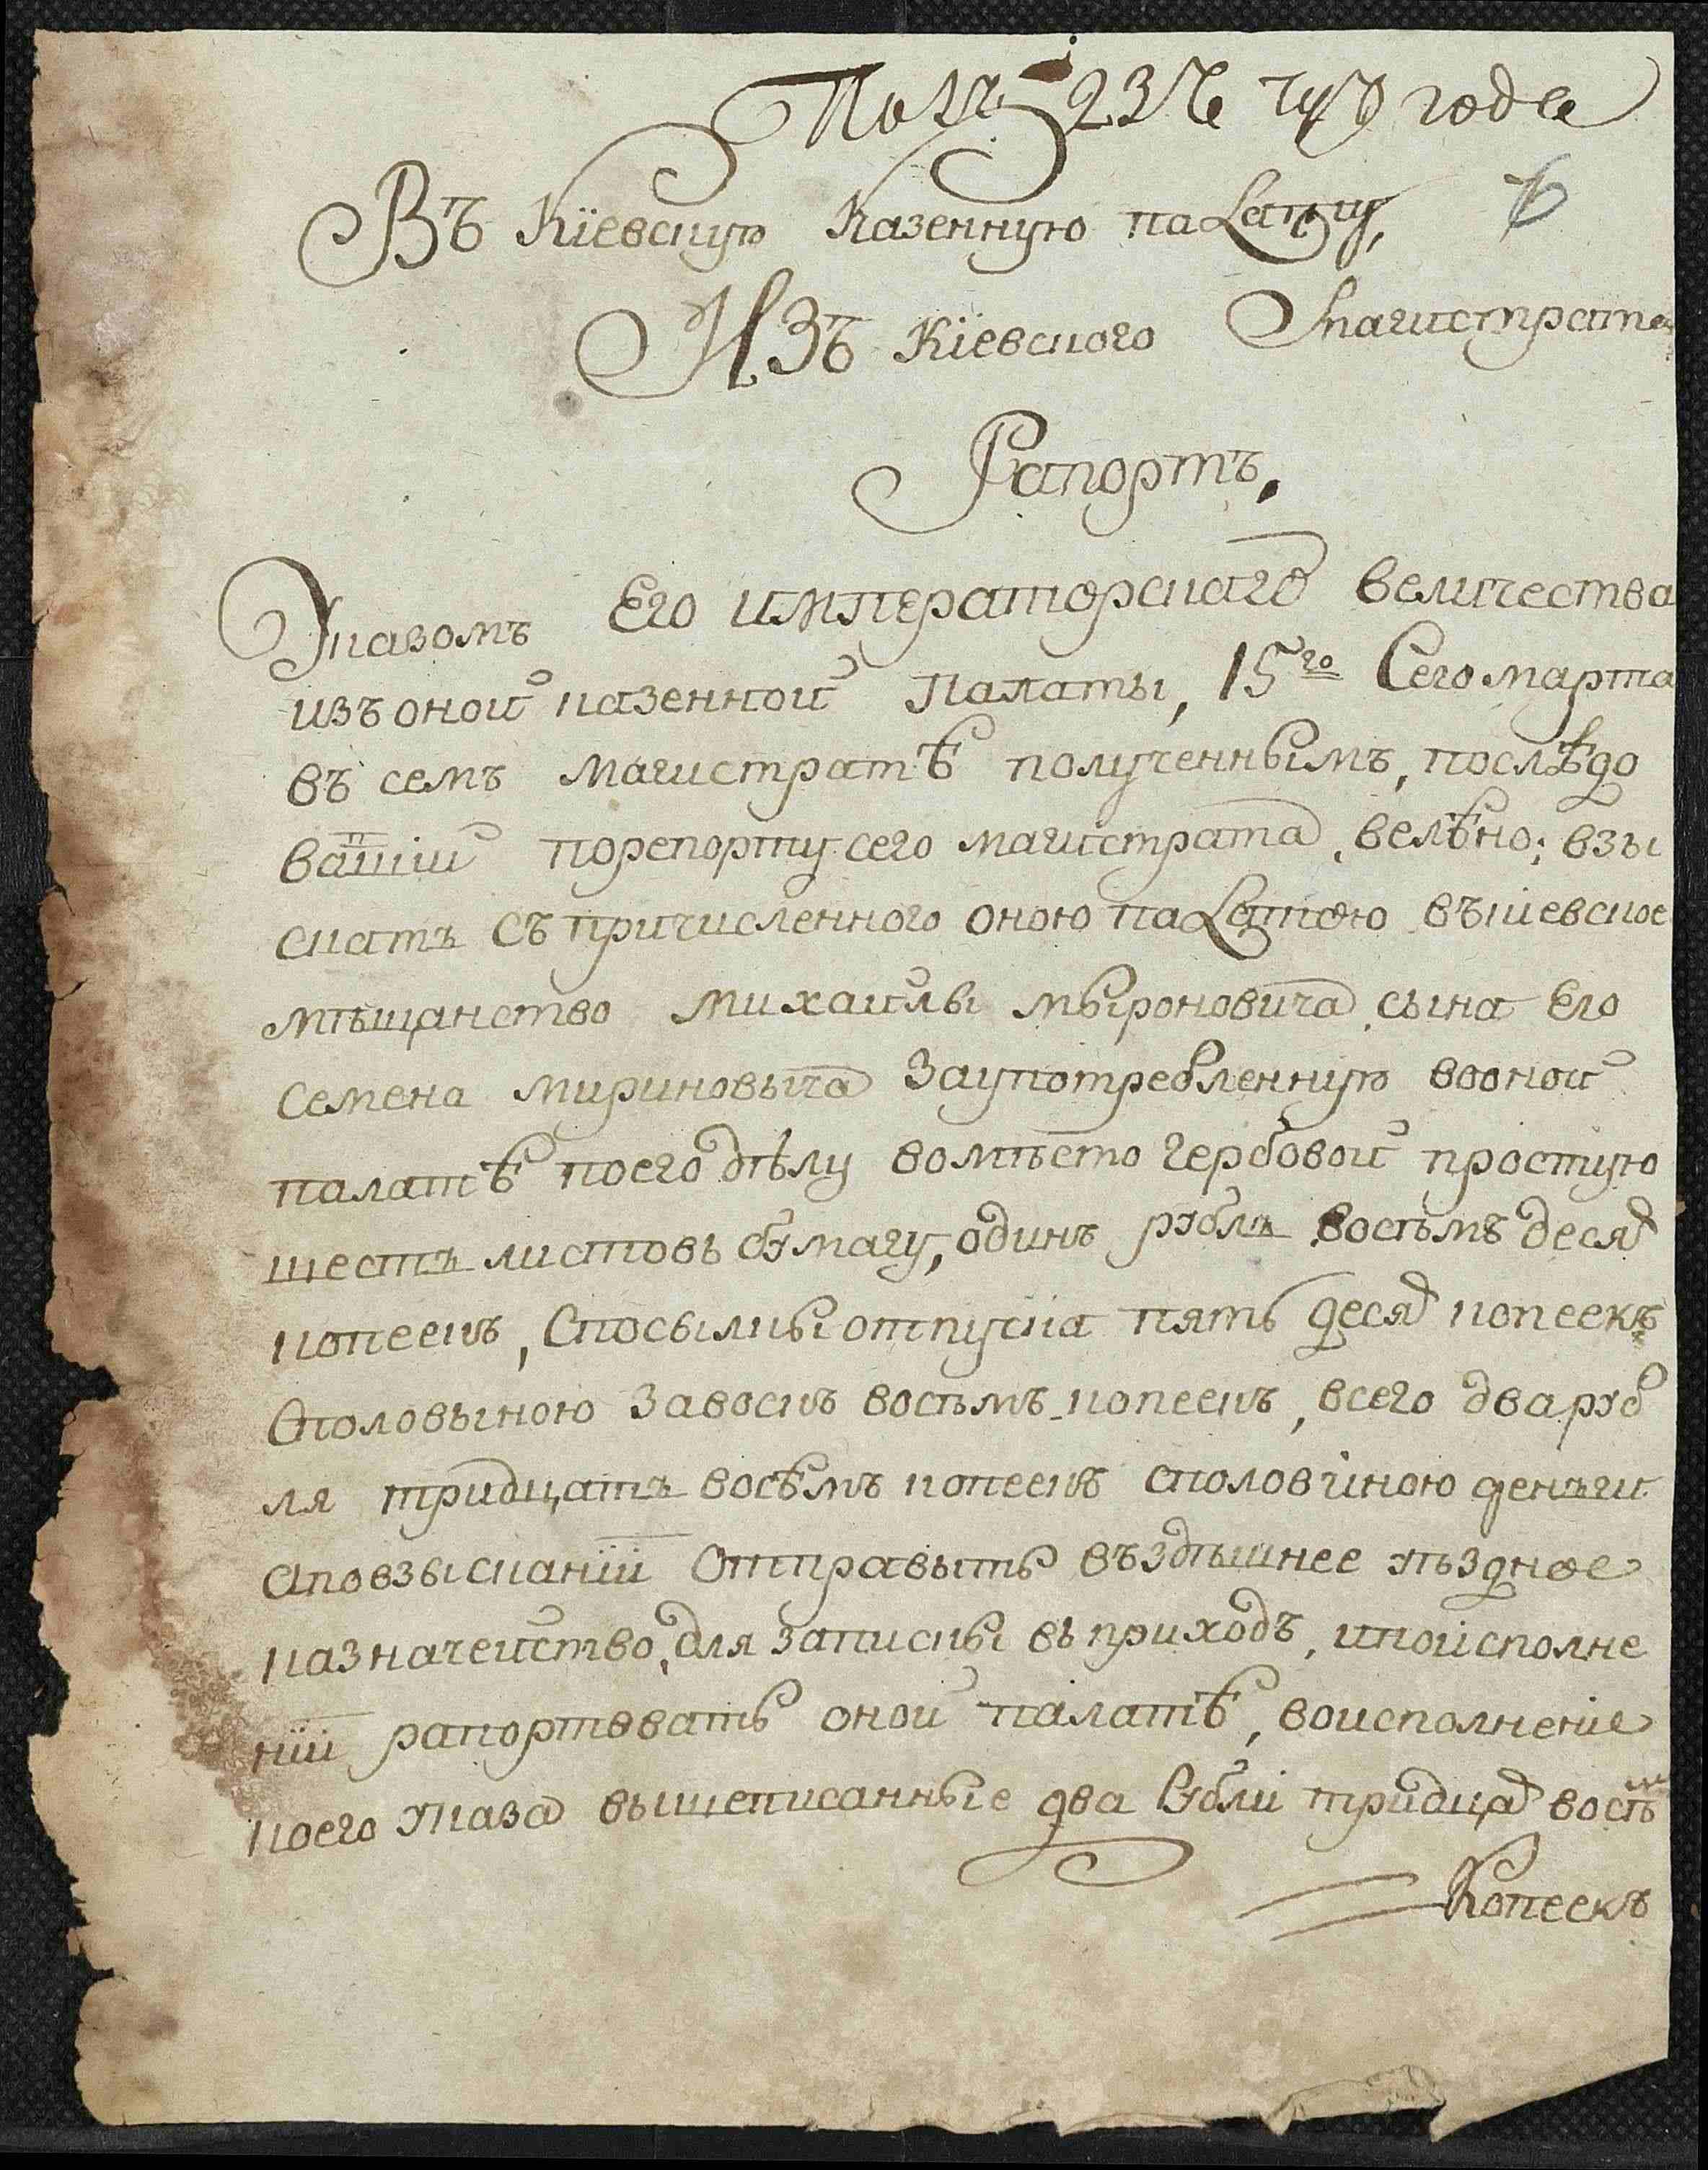 Въ Кїевскую Казенную палату,
ИЗъ Кїевского Магистрата
Рапортъ,
Указомъ Его императорскаго величества
изъ оной казенной Палаты, 15го Сего марта
въ семъ магистратѣ полученнымъ, послѣдо
вашїй порепорту сего магистрата, велѣно; взы
скать съ причисленного оною палатою въкиевское
мѣщанство михайлы мыроновича сына Его
семена мириновыча заупотребленную воной
палатѣ поего дѣлу вомѣсто гербовой простую
шесть листовъ бумагу, одинъ рубль восѣмъ десяд
копеекъ, Спосылкы отпуска пять десяд копеекъ
Споловыною завоскъ восѣмъ копеекъ, всего дваруб
ля тридцать восѣмъ копеекъ споловиною денъги
аповзысканїи Отправыть въздѣшнее уѣздное
казначейство, для записки въ приходъ, ипоисполне
нїи рапортовать оной палатѣ, воисполненіе
коего указа вышеписанные два Рубли тридцад восѣм
Копеекъ